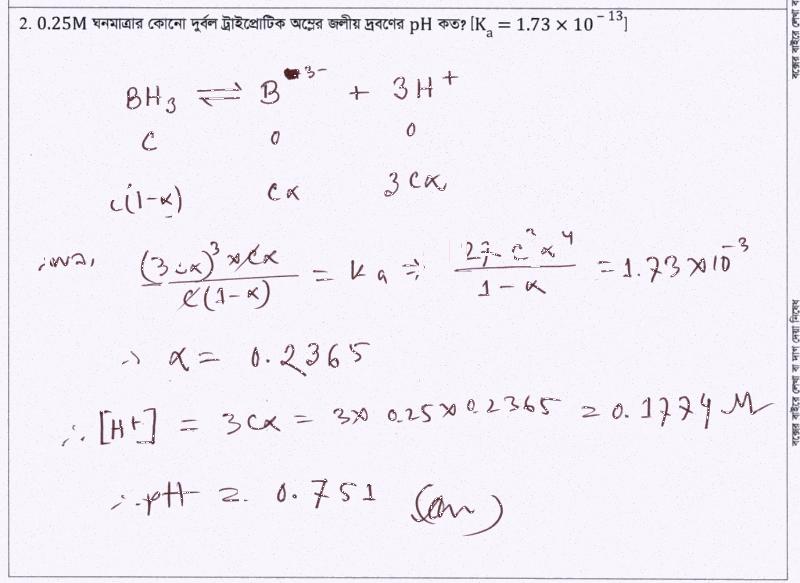 2. 0.25M ঘনমাত্রার কোনো দুর্বল ট্রাইপ্রোটিক অম্লের জলীয় দ্রবণের pH কত? [Kₐ = 1.73 × 10⁻¹³]
BH₃ ⇌ B³⁻ + 3H⁺
C 0 0
C(1-α) Cα 3Cα
(3Cα)³ × Cα / C(1-α) = Ka ⇒ 27 C³α⁴ / 1-α = 1.73×10⁻³
∴ α = 0.2365
∴ [H⁺] = 3Cα = 3× 0.25×0.2365 = 0.1774 M
∴ pH = 0.751 (Ans)
বক্সের বাইরে লেখা বা দাগ দেয়া নিষেধ